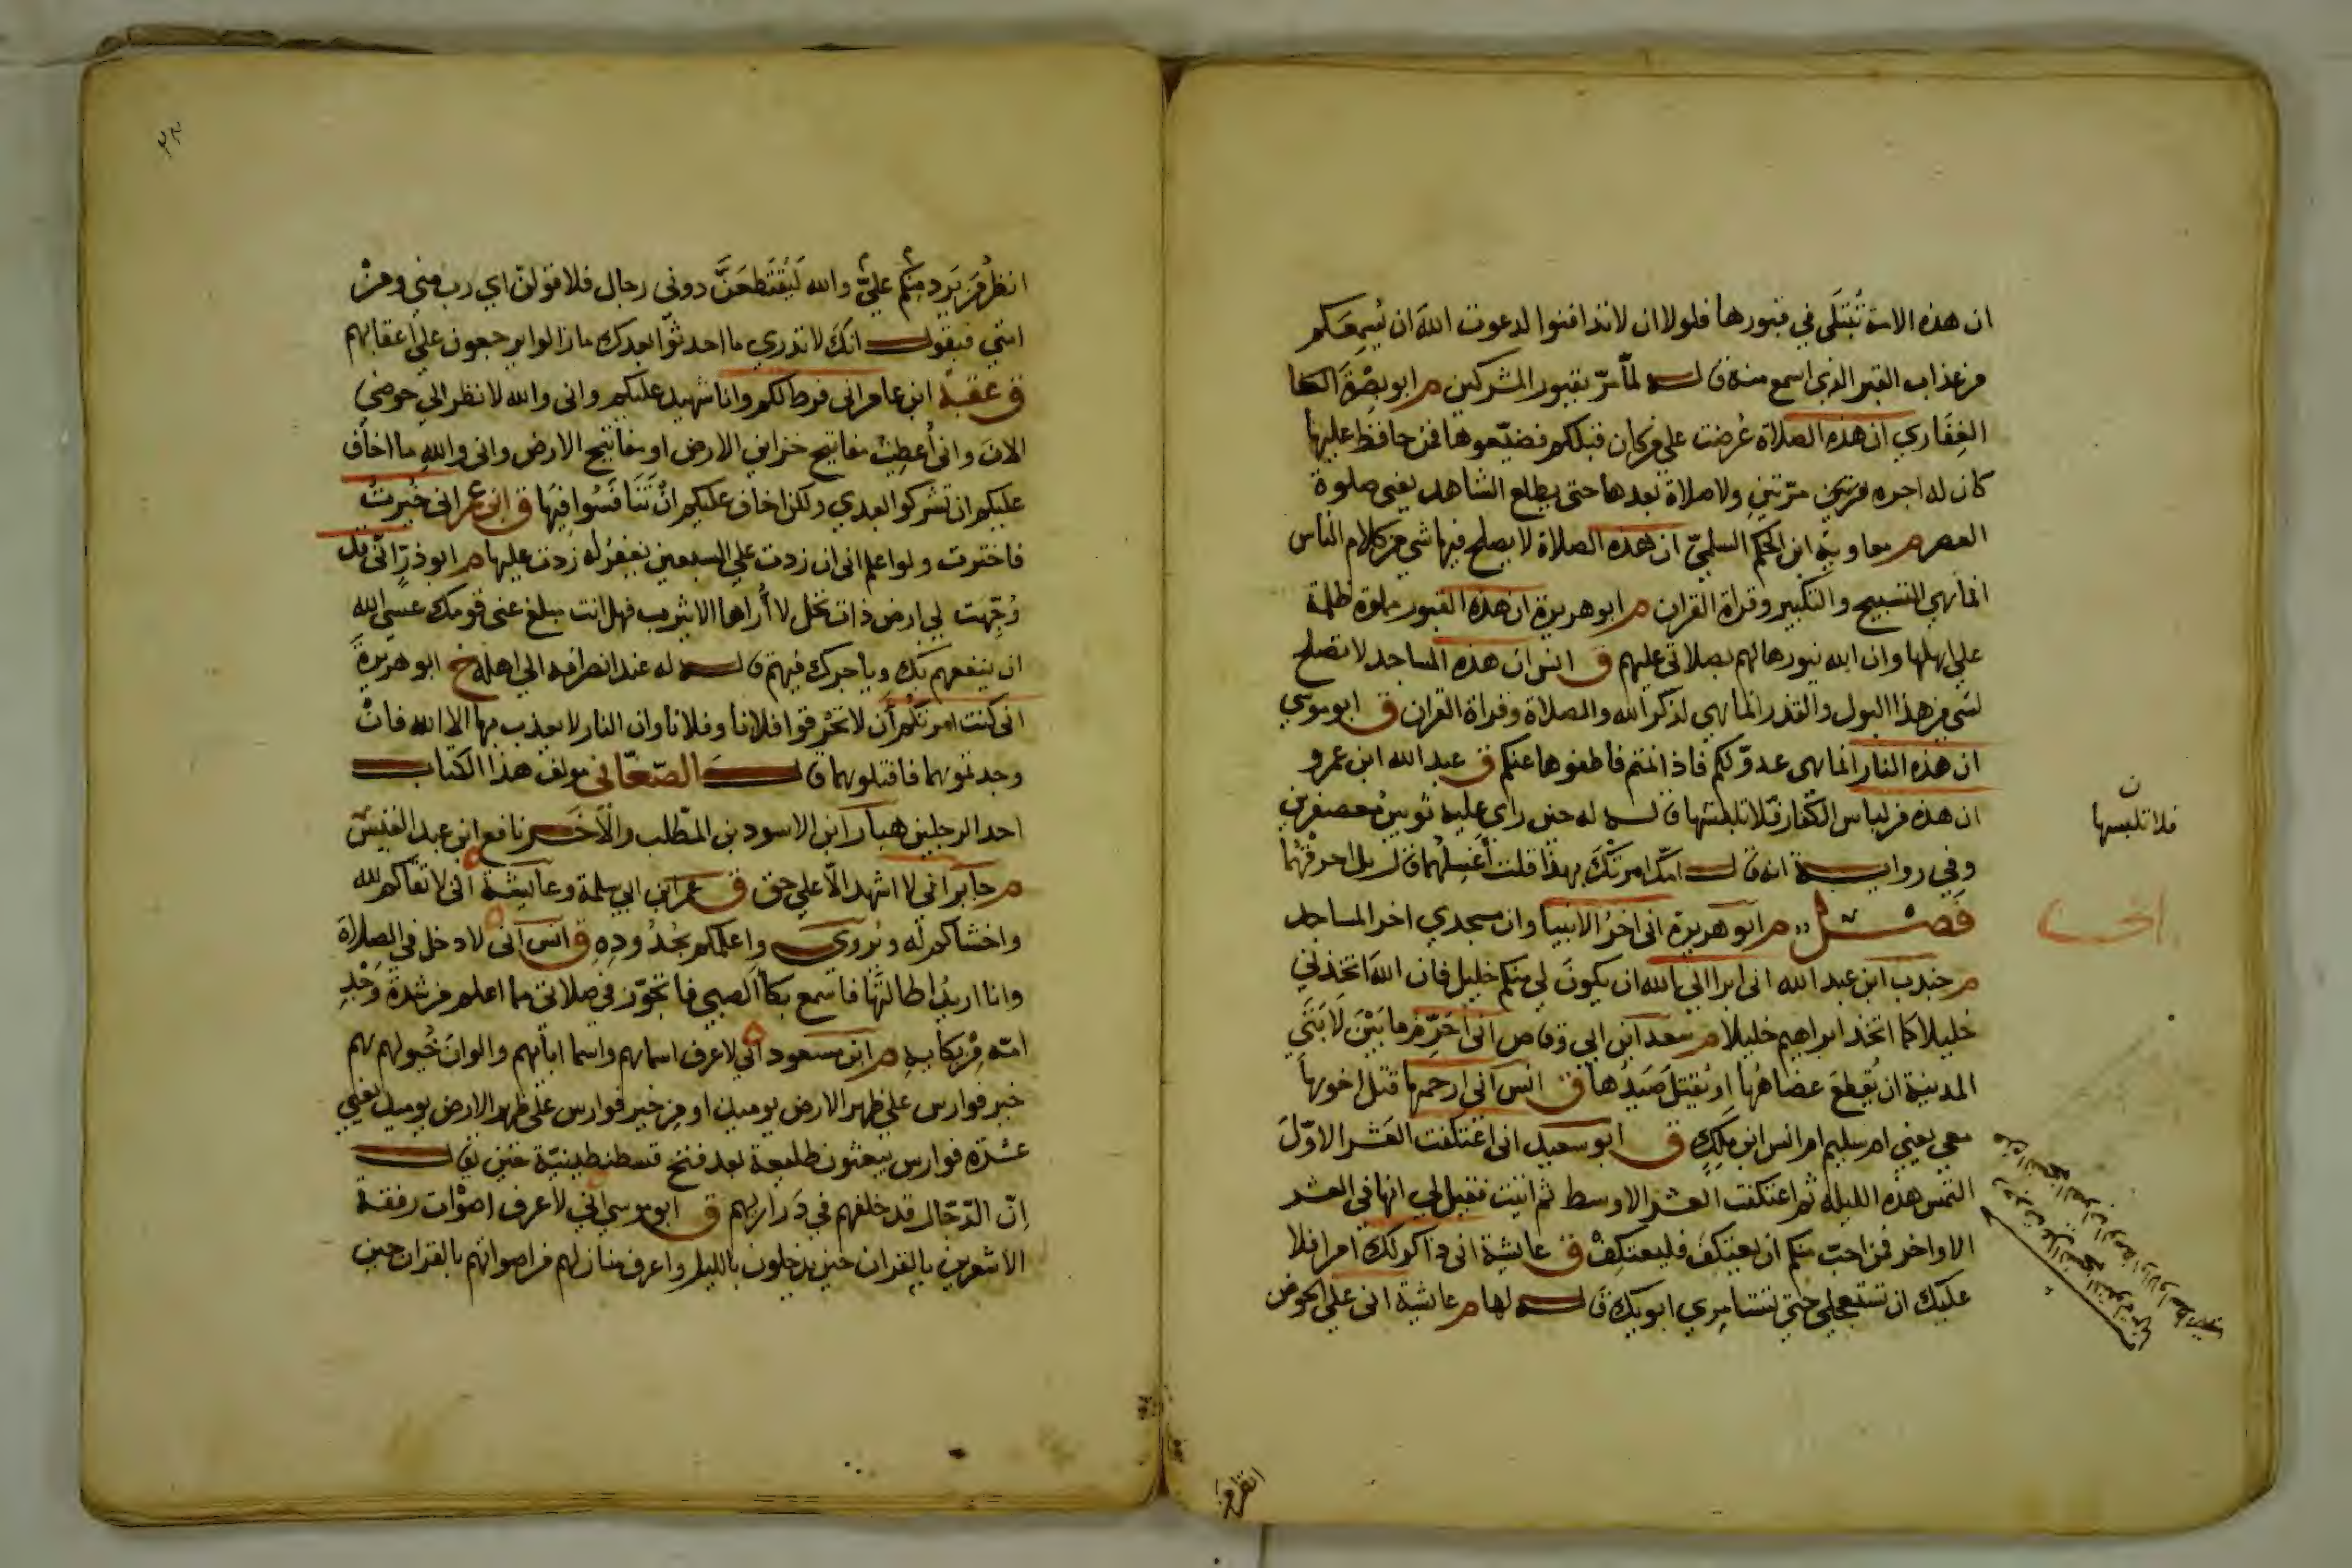 ان هذه الامة تُبتَلَى في قبورها فلولا ان لا تدافنوا لدعوت اللهَ ان يُسمِعَكم
من عذاب القبر الذي اسمع منه قاله لما مرّ بقبور المشركين م ابو بصْرَة
الغِفَاري ان هذه الصلاة عُرضت على من كان قبلكم فضيّعوها فمن حافظ عليها
كان له اجره مرّتين ولا صلاة بعدها حتى يطلع الشاهد يعنى صلوة
العصر م معاوية ابن الحكم السلميّ ان هذه الصلاة لا يصلح فيها شي من كلام الناس
انما هي التسبيح والتكبير وقراة القران م ابو هريرة ان هذه القبور مملوة ظلمة
على اهلها وان الله ينورها لهم بصلاتي عليهم ق انس ان هذه المساجد لا تصلح
لشي من هذا البول والقذر انما هي لذكر الله والصلاة وقراة القران ق ابو موسي
ان هذه النار انما هى عدوّ لكم فاذا نمتم فاطفوها عنكم ق عبد الله ابن عمرو
ان هذه من لباس الكفار فلا تلبسها قاله له حين راى عليه ثوبين معصفرين
وفي رواية انه قال امّك امرتْكَ بهذا قلت أغسِلُهما قال بل احرقهُما
فصْل م ابو هريرة انى اخرُ الانبيا وان مسجدي اخر المساجد
م جندب ابن عبد الله انى ابرا الى الله ان يكونَ لي منكم خليل فان اللهَ اتخذني
خليلا كما اتخذ ابراهيم خليلا م سعد ابن ابي وقاص انى احَرّم ما بَيْنَ لابَتَي
المدينة ان يُقطعَ عضاهُها او يُقتلَ صَيدُها ق انس انى ارحمها قتل اخوها
معى يعني ام سليم ام انس ابن ملِكٍ ق ابو سعيد انى اعتكفت العَشر الاوّلَ
التمس هذه الليلة ثم اعتكفت العشر الاوسط ثم اتيت فقيل لي انها في العشر
الاواخر فمن احبّ منكم ان يعتكفَ فليعتكِفْ ق عايشة انى ذاكر لك امرا فلا
عليك ان تستعجلي حتى تستامِري ابويكِ قاله لها م عايشة انى على الحوض
فلا تلبسها
انظر من
انظُر من يَرد منكم عليّ والله لَيُقتَطعَنَّ دونى رجال فلاقولنّ اي رب مني ومنْ
امتي فيقول انكَ لا تدري ما احدثوا بعدك ما زالوا يرجعون على اعقابهم
ق عقبة ابن عامر انى فرط لكم وانا شهيد عليكم وانى والله لانظر الى حوضي
الانَ وانى أُعطِيتُ مفاتيح خزاين الارض او مفاتيح الارض وانى واللهِ ما اخاف
عليكم ان تشركوا بعدي ولكن اخاف عليكم انْ تَنَافسُوا فيها ق ابن عمر انى خُيرتُ
فاخترت ولو اعلم انى ان زدت على السبعين يغفرُ له زدت عليها م ابو ذرّ انى قد
وُجّهت لي ارض ذات نخل لا أُراها الا يثرب فهل انت مبلغ عنى قومك عسى الله
ان ينفعهم بك وياجرك فيهم قاله له عند انصرافه الى اهله خ ابو هريرة
انى كنت امرتكم أن لا تحْرقوا فلانا وفلانا وان النار لا يعذب بها الا الله فانْ
وجدتموهما فاقتلوهما قال الصّغاني مولف هذا الكتاب
احد الرجلين هبار ابن الاسود بن المطّلب والاخر نافع ابن عبد القيس
م جابر انى لا اشهد الّا على حق ق عمر ابن ابي سلمة وعايشة انى لاتقاكم لله
واخشاكم له ويُروى واعلمكم بحُدُودِهِ ق انس انى لادخل في الصلاةِ
وانا اريدُ اطالتَها فاسمع بكأ الصبي فاتجوّز في صلاتي مما اعلم من شدّة وَجْدِ
امّه مِنْ بكايهِ م ابن مسعود انى لاعرف اسماهم واسما ابائهم والوانَ خُيولهم هم
خير فوارس على ظهر الارض يوميذ او من خير فوارس على ظهر الارض يوميذ يعني
عشَرة فوارس يبعثون طليعة بعد فتح قسطنطينيّة حين يقال
اِنّ الدّجال قد خلفهم في ذَراريهم ق ابو موسي انى لاعرف اصوْات رفقة
الاشعرين بالقران حين يدخلون بالليل واعرف منازلهم من اصواتهم بالقران حين